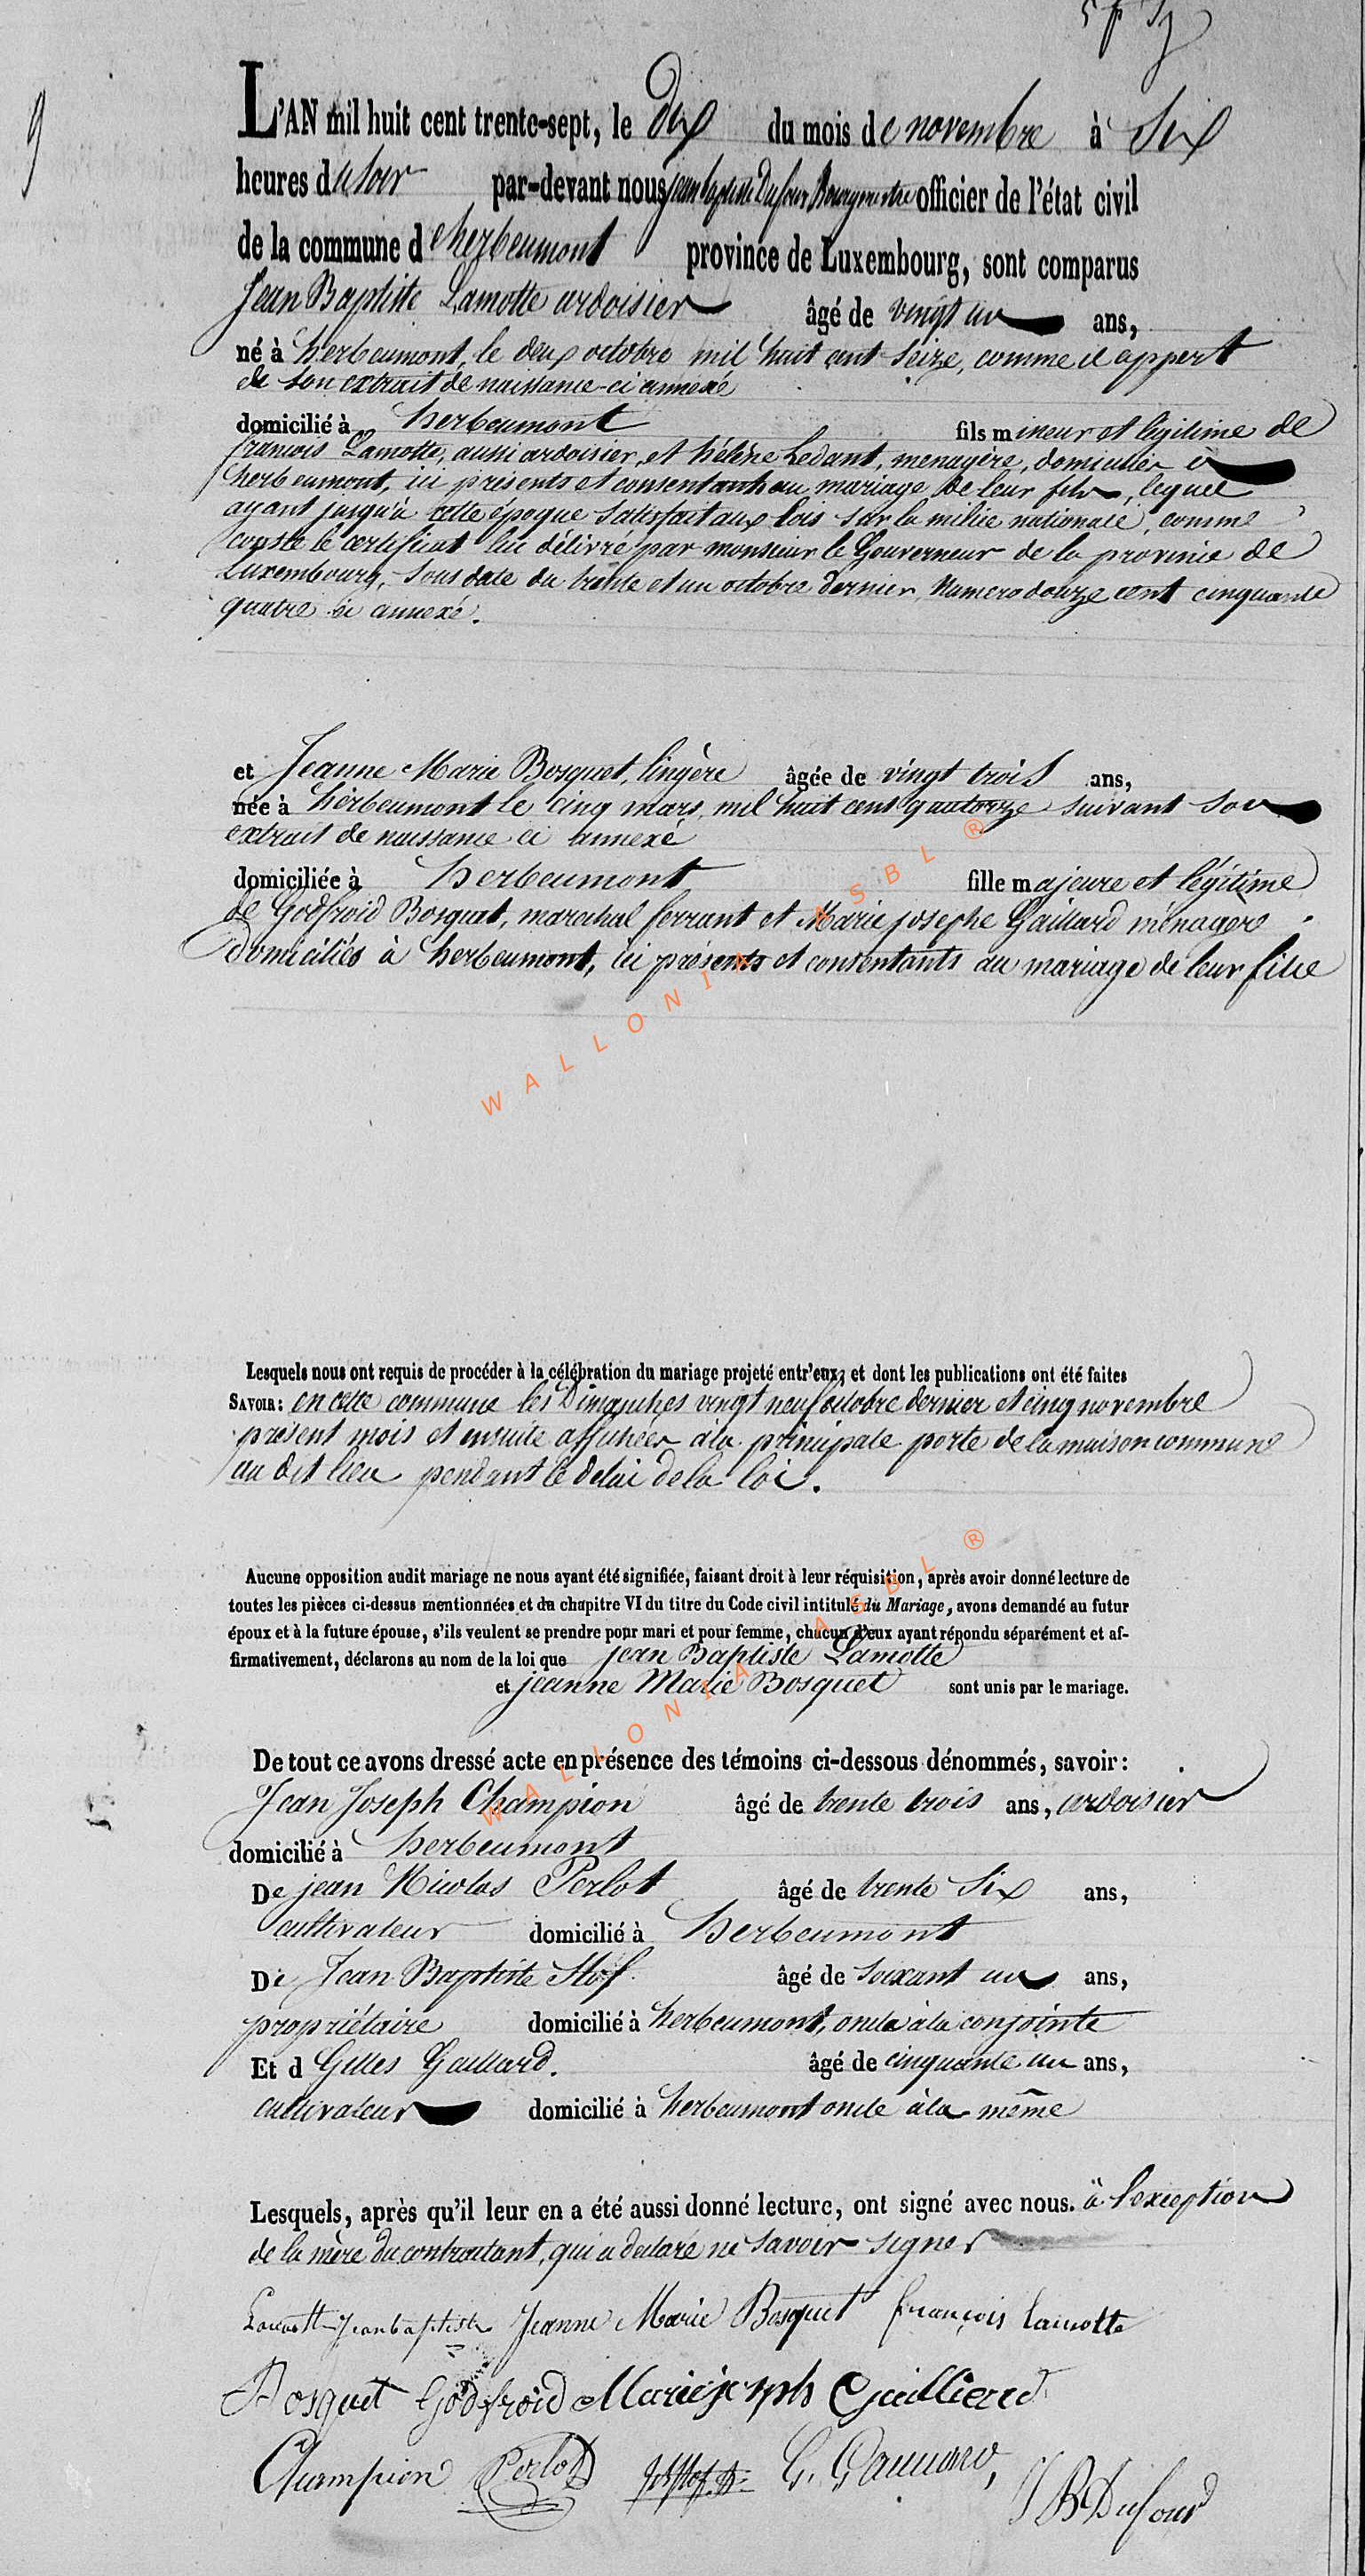 9
L'AN mil huit cent trente-sept, le dix du mois de novembre à Six
heures du soir par-devant nous jean baptiste Dufour Bourgmestre officier de l'état civil
de la commune d'herbeumont province de Luxembourg, sont comparus
Jean Baptiste Lamotte ardoisier âgé de vingt un ans,
né à herbeumont, le deux octobre mil huit cent Seize, comme il appert
de son extrait de naissance ci annexé
domicilié à herbeumont fils mineur et légitime de
francois Lamotte, aussi ardoisier, et hélène Ledant, menagère, domiciliés à
herbeumont, ici présents et consentants au mariage de leur fils, lequel
ayant jusqu'à cette époque Satisfait aux lois sur la milice nationale, comme
conste le certificat lui délivré par monsieur le Gouverneur de la province de
Luxembourg, Sous date du trente et un octobre dernier, Numero douze cent cinquante
quatre ci annexé.
et Jeanne Marie Bosquet, lingère âgée de vingt trois ans,
née à herbeumont le cinq mars, mil huit cent quatorze suivant son
extrait de naissance ci annexé
domiciliée à herbeumont fille majeure et légitime
de Godfroid Bosquet, marechal ferrant et Marie josephe Gaillard ménagère
domiciliés à herbeumont, ici présents et consentants au mariage de leur fille
WALLONIA ASBL ®
Lesquels nous ont requis de procéder à la célébration du mariage projeté entr'eux, et dont les publications ont été faites
SAVOIR: en cette commune les Dimanches vingt neuf octobre dernier et cinq novembre
présent mois et ensuite affichées à la principale porte de la maison commune
au dit lieu pendant le delai de la loi.
Aucune opposition audit mariage ne nous ayant été signifiée, faisant droit à leur réquisition, après avoir donné lecture de
toutes les pièces ci-dessus mentionnées et du chapitre VI du titre du Code civil intitulé du Mariage, avons demandé au futur
époux et à la future épouse, s'ils veulent se prendre pour mari et pour femme, chacun d'eux ayant répondu séparément et af-
firmativement, déclarons au nom de la loi que jean Baptiste Lamotte
et jeanne Marie Bosquet sont unis par le mariage.
WALLONIA ASBL ®
De tout ce avons dressé acte en présence des témoins ci-dessous dénommés, savoir:
Jean Joseph Champion âgé de trente trois ans, ardoisier
domicilié à herbeumont
De jean Nicolas Perlot âgé de trente Six ans,
cultivateur domicilié à herbeumont
De Jean Baptiste Hof. âgé de soixant un ans,
propriétaire domicilié à herbeumont, oncle à la conjointe
Et d Gilles Gaillard. âgé de cinquante un ans,
cultivateur domicilié à herbeumont oncle à la même
Lesquels, après qu'il leur en a été aussi donné lecture, ont signé avec nous. à l'exception
de la mère du contractant, qui a declaré ne savoir signer
Lamotte jean baptiste Jeanne Marie Bosquet françois lamotte
Bosquet Godfroid Marie joseph Gailliard
Champion Perlot G. Gaillard, J B Dufour